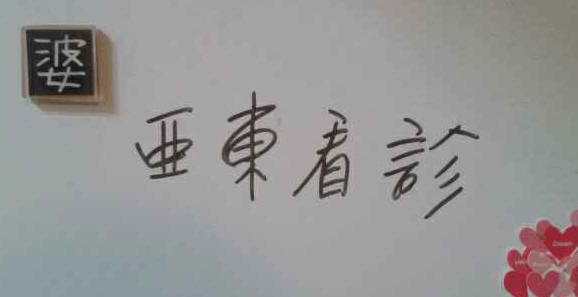 婆
亞東看診